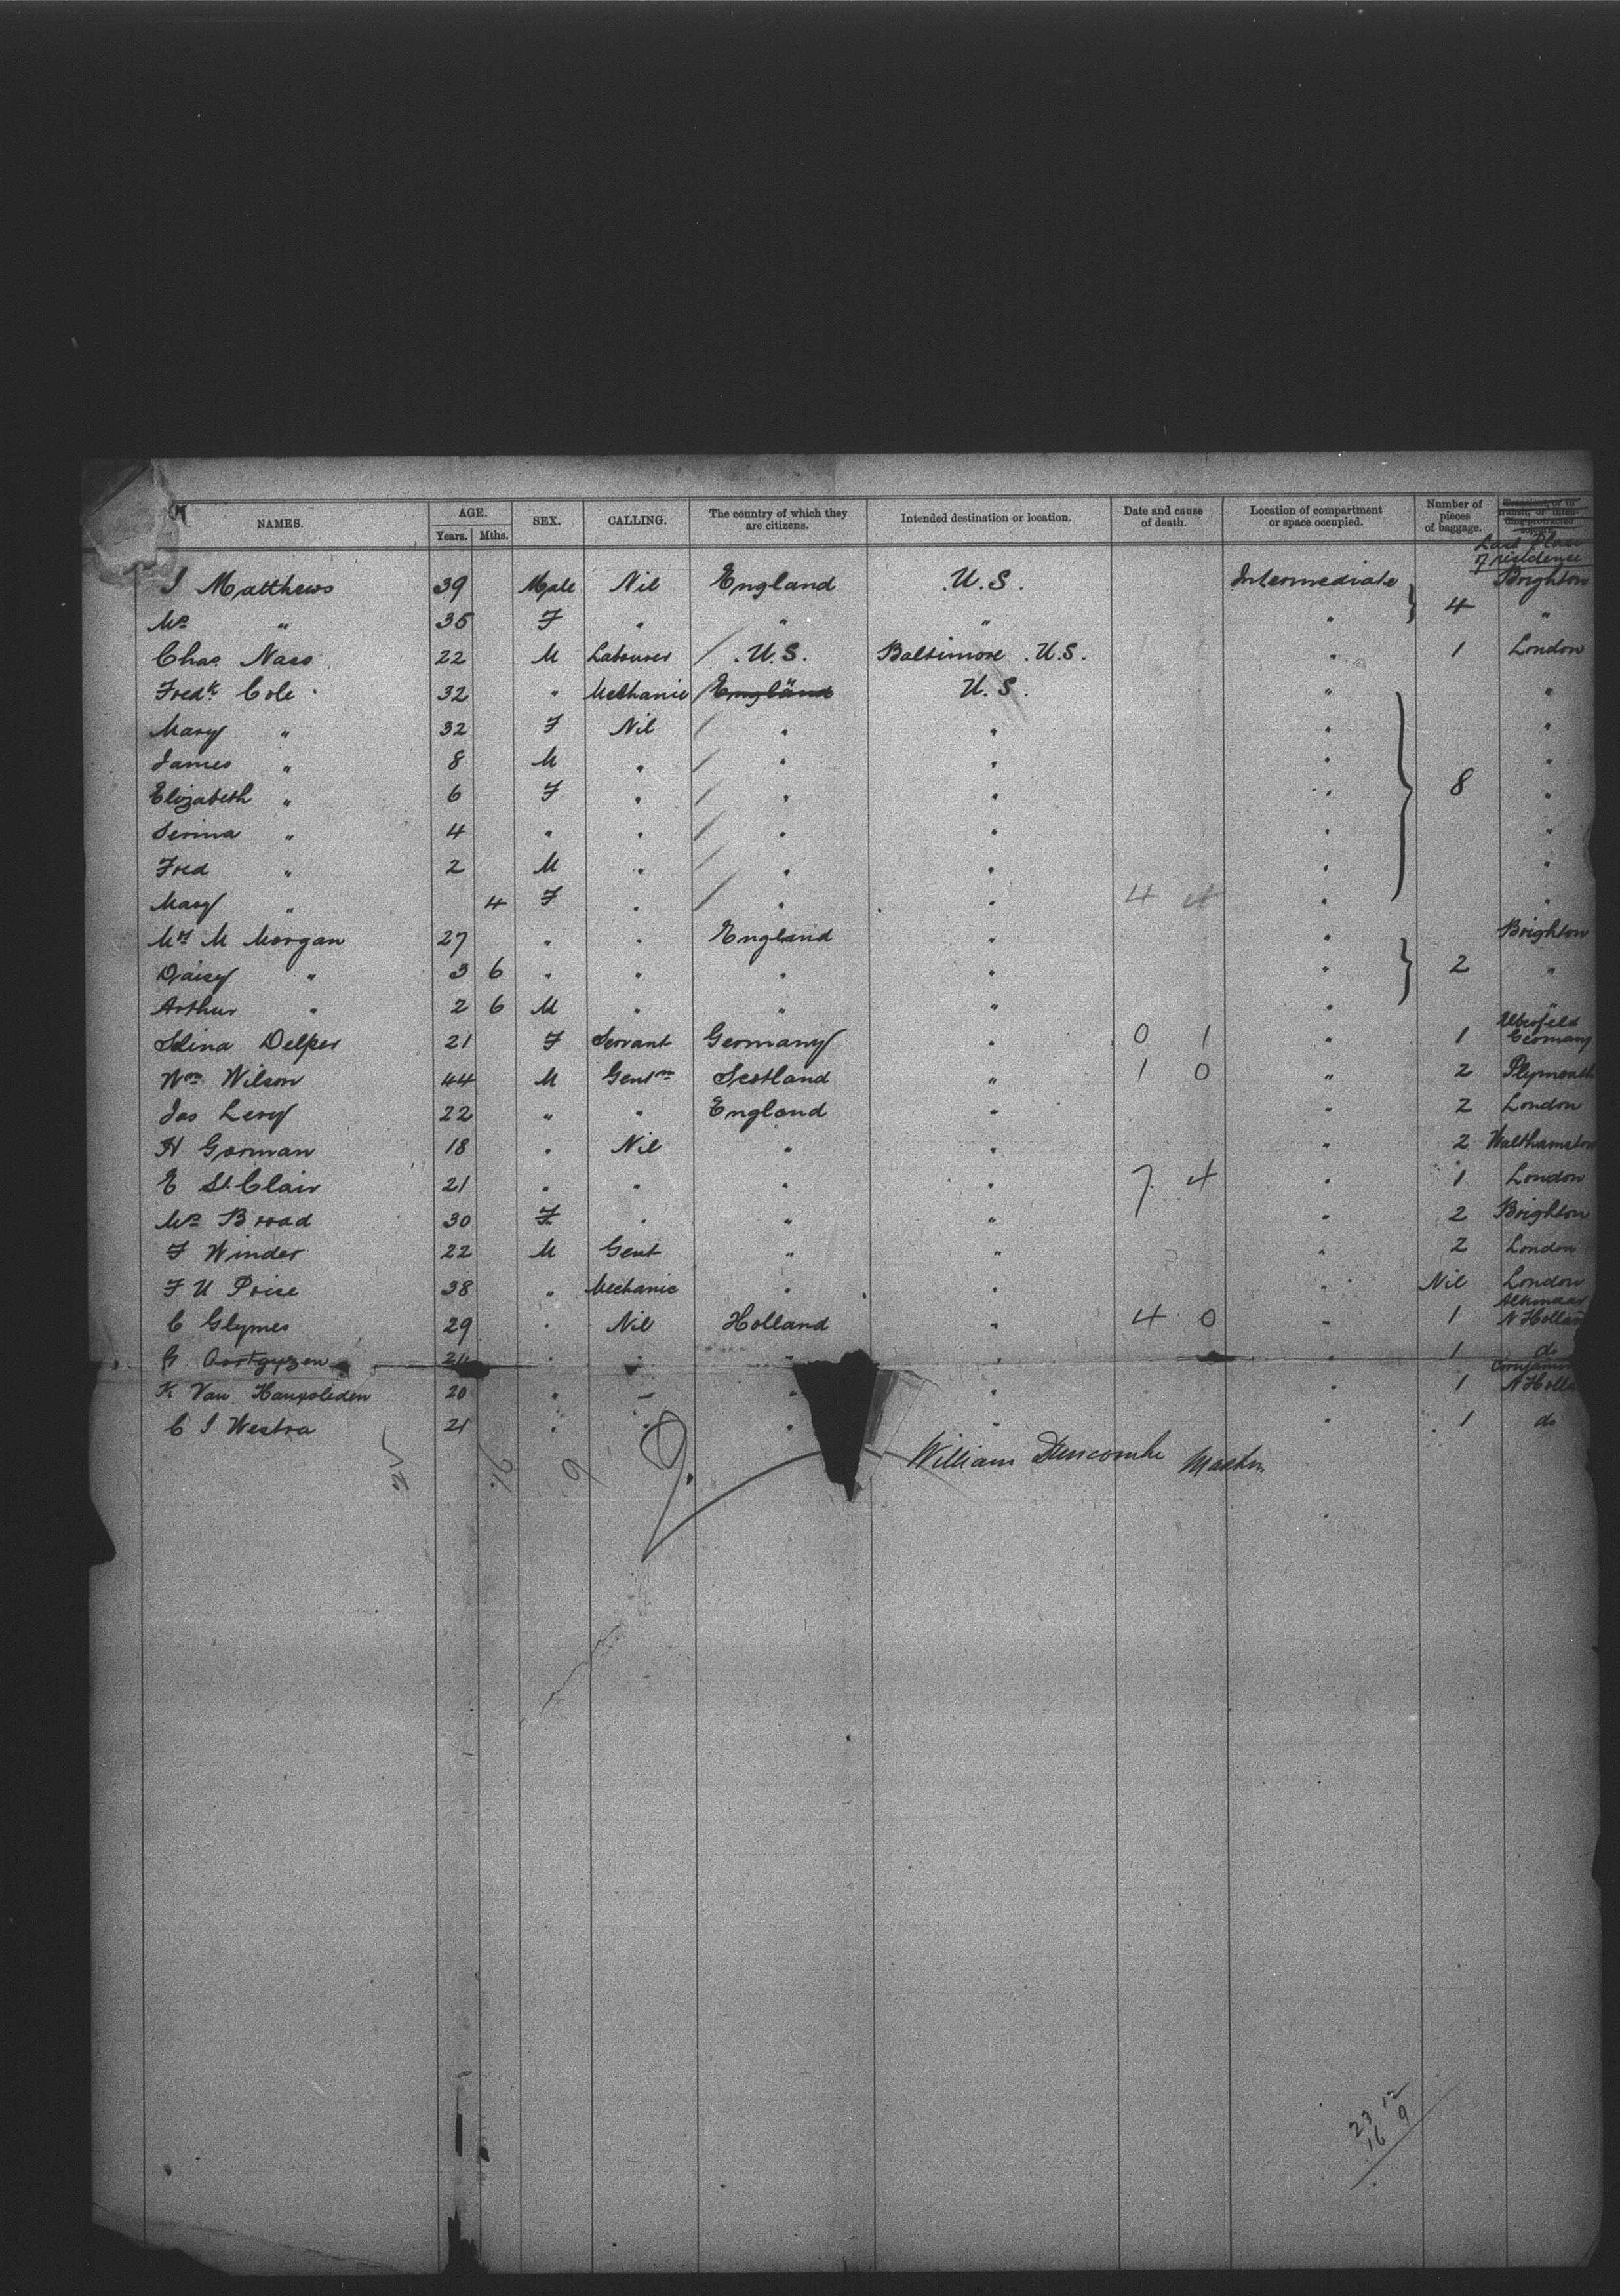 NAMES. AGE. Years. Mths. SEX. CALLING. The country of which they are citizens. Intended destination or location. Date and cause of death. Location of compartment or space occupied. Number of pieces of baggage.
Last Place of residence
J Matthews 39 Male Nil England U.S. Intermediate 4 Brighton
Mrs " 35 F " " " " "
Chas. Nass 22 M Labourer U.S. Baltimore U.S. " 1 London
Fredk Cole 32 " Mechanic England U.S. " "
Mary " 32 F Nil " " " "
James " 8 M " " " " "
Elizabeth " 6 F " " " " 8 "
" 4 " " " " " "
Fred " 2 M " " " " "
Mary " 4 F " " " 4 " "
Mrs M Morgan 27 " " England " " Brighton
Daisy " 3 6 " " " " " 2 "
Arthur " 2 6 M " " " " "
Delper 21 F Servant Germany " 0 1 " 1 Germany
Wm Wilson 44 M Gentm Scotland " 1 0 " 2 Plymouth
Jas Levy 22 " " England " " 2 London
H Gorman 18 " Nil " " " 2 Walthamstow
E St. Clair 21 " " " " 7 4 " 1 London
Mrs Broad 30 F " " " " 2 Brighton
F Winder 22 M Gent " " " 2 London
F U Price 38 " Mechanic " " " Nil London
C Glymes 29 " Nil Holland " 4 0 " 1 Alkmaar N Holland
G. Oortgyzen 24 " " " " " 1 do
K Van 20 " " " " " 1 N Holla
C J Westra 21 " " " " " 1 do
William Duncombe Master
16 9 9.
23 12
16 9